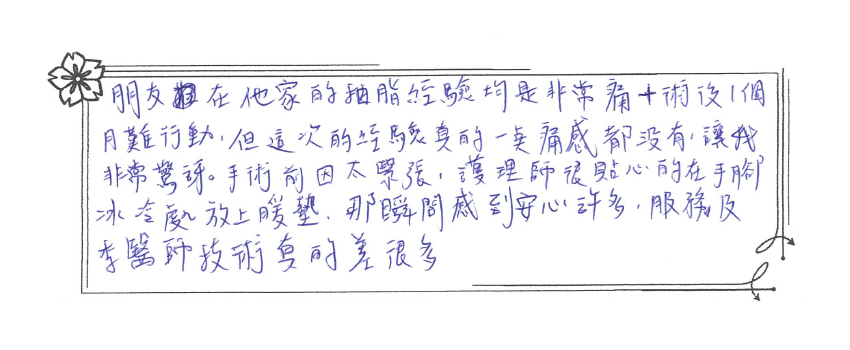 朋友在他家的抽脂經驗均是非常痛+術後1個
月難行動,但這次的經驗真的一點痛感都沒有,讓我
非常驚訝。手術前因太緊張,護理師很貼心的在手腳
冰冷處放上暖墊,那瞬間感到安心許多,服務及
李醫師技術真的差很多